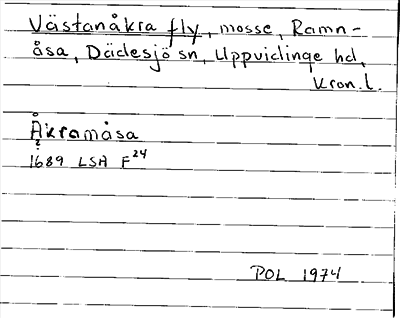 Västanåkra fly, mosse, Ramn-
åsa, Dädesjö sn, Uppvidinge hd,
Kron.l.
Åkramåsa
?
1689 LSA F24
POL 1974